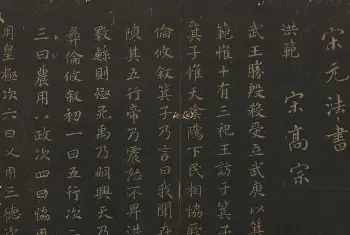 宋元法書
洪範　宋高宗
武王勝殷殺受立武庚以箕
範惟十有三祀王訪于箕
箕子惟天陰隲下民相恊厥
倫攸敘箕子乃言曰我聞在
其五行帝乃震怒不畀洪
斁鯀則殛死禹乃嗣興天乃
彝倫攸敘初一曰五行次
三曰農用八政次四曰恊用
用皇極次六曰乂用三德次